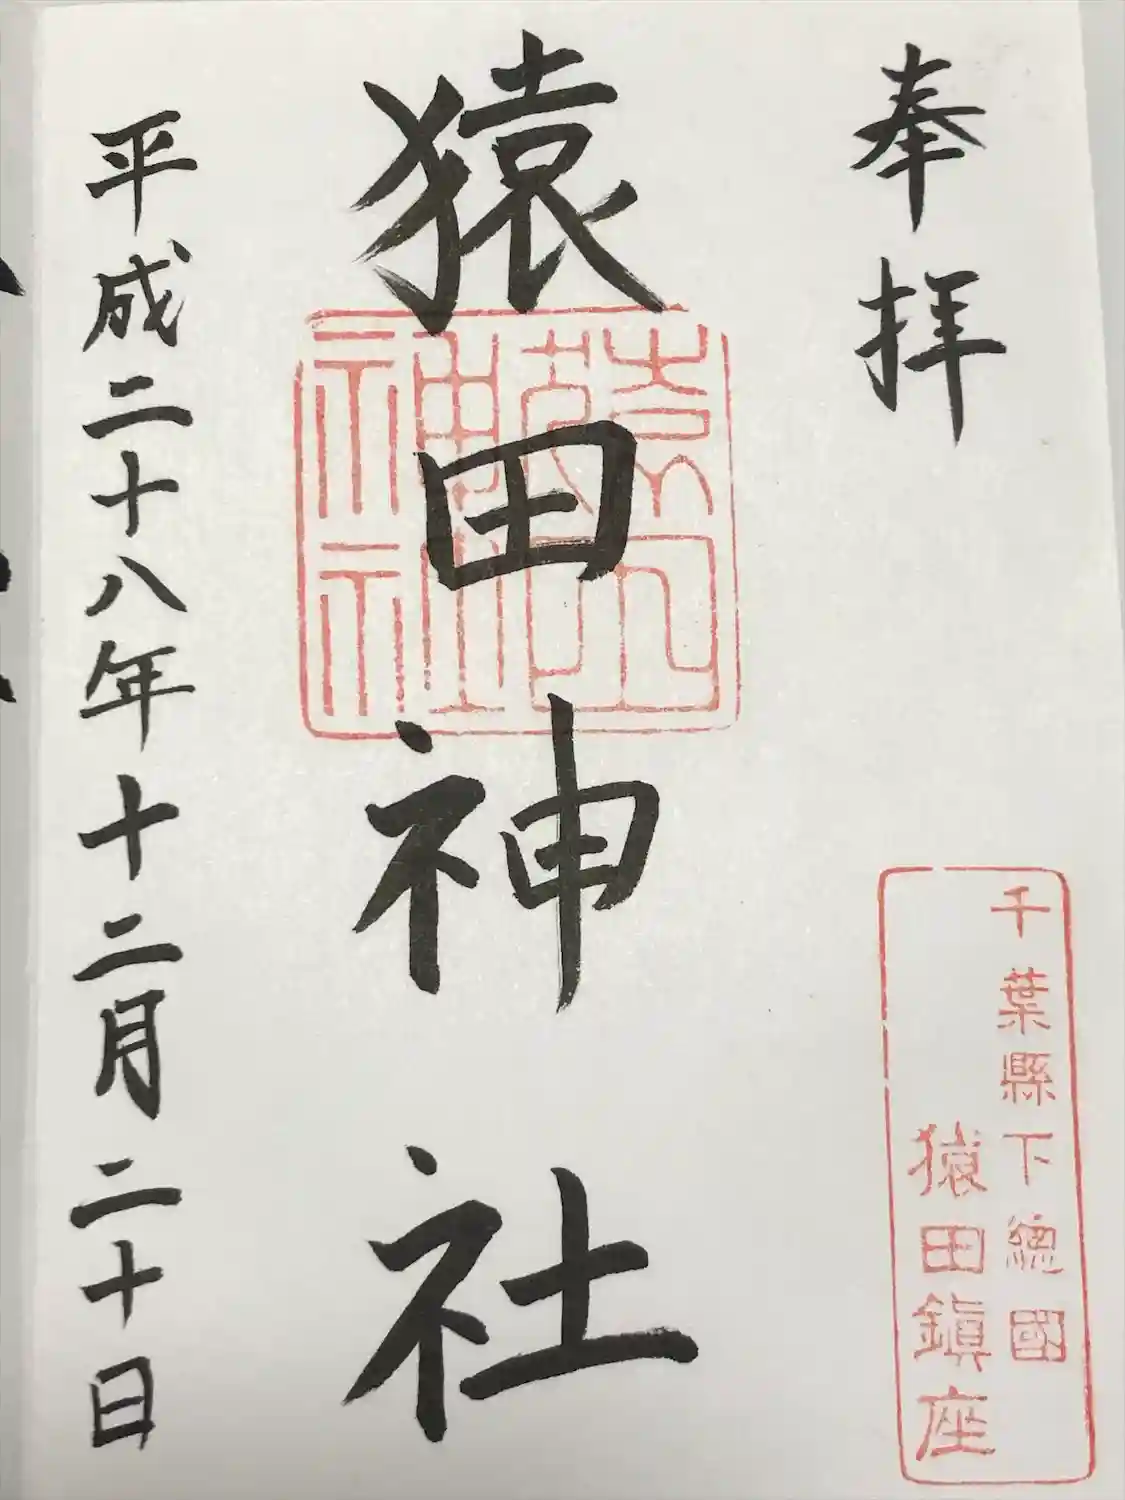 奉拝
千葉縣下總國
猿田鎮座
猿田神社
猿田
神社
平成二十八年十二月二十日